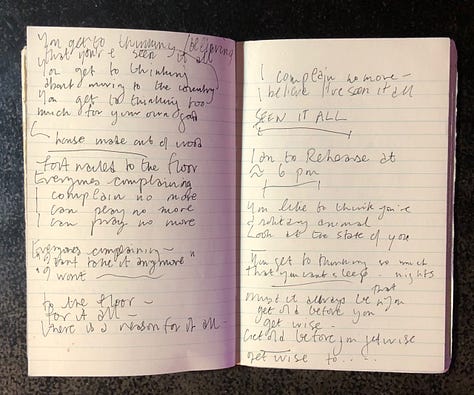 You get to thinking / believing
that you've seen it all
You get to thinking
about moving to the country
You get to thinking too
much for your own good
house made out of wood
Foot nailed to the floor
Everyones complaining
I complain no more
I can play no more
I can pray no more
Everyones complaining -
"I won't take it anymore"
"I won't
to the floor -
for it all -
there is a reason for it all -
I complain no more -
I believe I've seen it all
SEEN IT ALL
I am to Rehearse at
~ 6 pm
You like to think you're
a animal
Look at the state of you
You get to thinking so much
that you can't sleep nights
must it always be that you
get old before you
get wise -
Get old before you get wise
get wise to.....